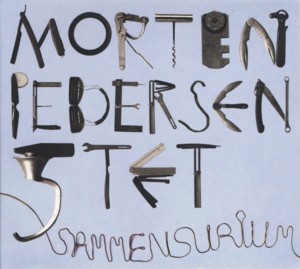 MORTEN
PEDERSEN
5TET
SAMMENSURIUM